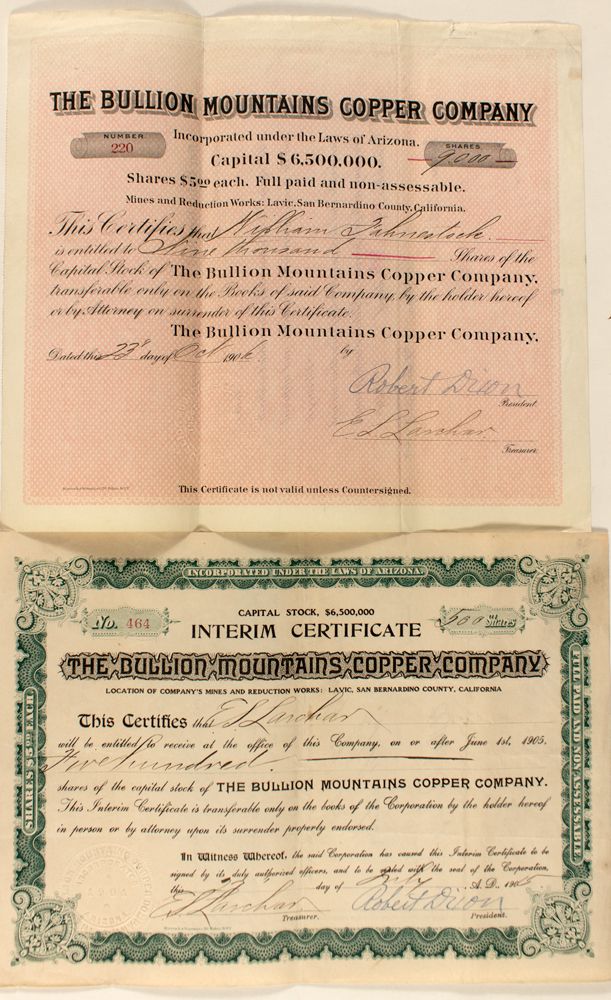 THE BULLION MOUNTAINS COPPER COMPANY
NUMBER
220
Incorporated under the Laws of Arizona.
SHARES
9000
Capital $6,500,000.
Shares $5.00 each. Full paid and non-assessable.
Mines and Reduction Works: Lavic, San Bernardino County, California.
This Certifies that William Fahnestock
is entitled to Nine thousand Shares of the
Capital Stock of The Bullion Mountains Copper Company,
transferable only on the Books of said Company, by the holder hereof
or by Attorney on surrender of this Certificate.
The Bullion Mountains Copper Company.
Dated this 23d day of Oct 1906 by
Robert Dixon
President
E S Larchar
Treasurer.
This Certificate is not valid unless Countersigned.
INCORPORATED UNDER THE LAWS OF ARIZONA.
CAPITAL STOCK, $6,500,000
No. 464
500 Shares
INTERIM CERTIFICATE
THE BULLION MOUNTAINS COPPER COMPANY
LOCATION OF COMPANY'S MINES AND REDUCTION WORKS: LAVIC, SAN BERNARDINO COUNTY, CALIFORNIA
This Certifies that E S Larchar
will be entitled to receive at the office of this Company, on or after June 1st, 1905,
Five hundred
shares of the capital stock of THE BULLION MOUNTAINS COPPER COMPANY.
This Interim Certificate is transferable only on the books of the Corporation by the holder hereof
in person or by attorney upon its surrender properly endorsed.
In Witness Whereof, the said Corporation has caused this Interim Certificate to be
signed by its duly authorized officers, and to be sealed with the seal of the Corporation,
this day of A. D., 190
E S Larchar
Treasurer.
Robert Dixon
President.
SHARES $5.00 EACH
FULL PAID AND NON-ASSESSABLE